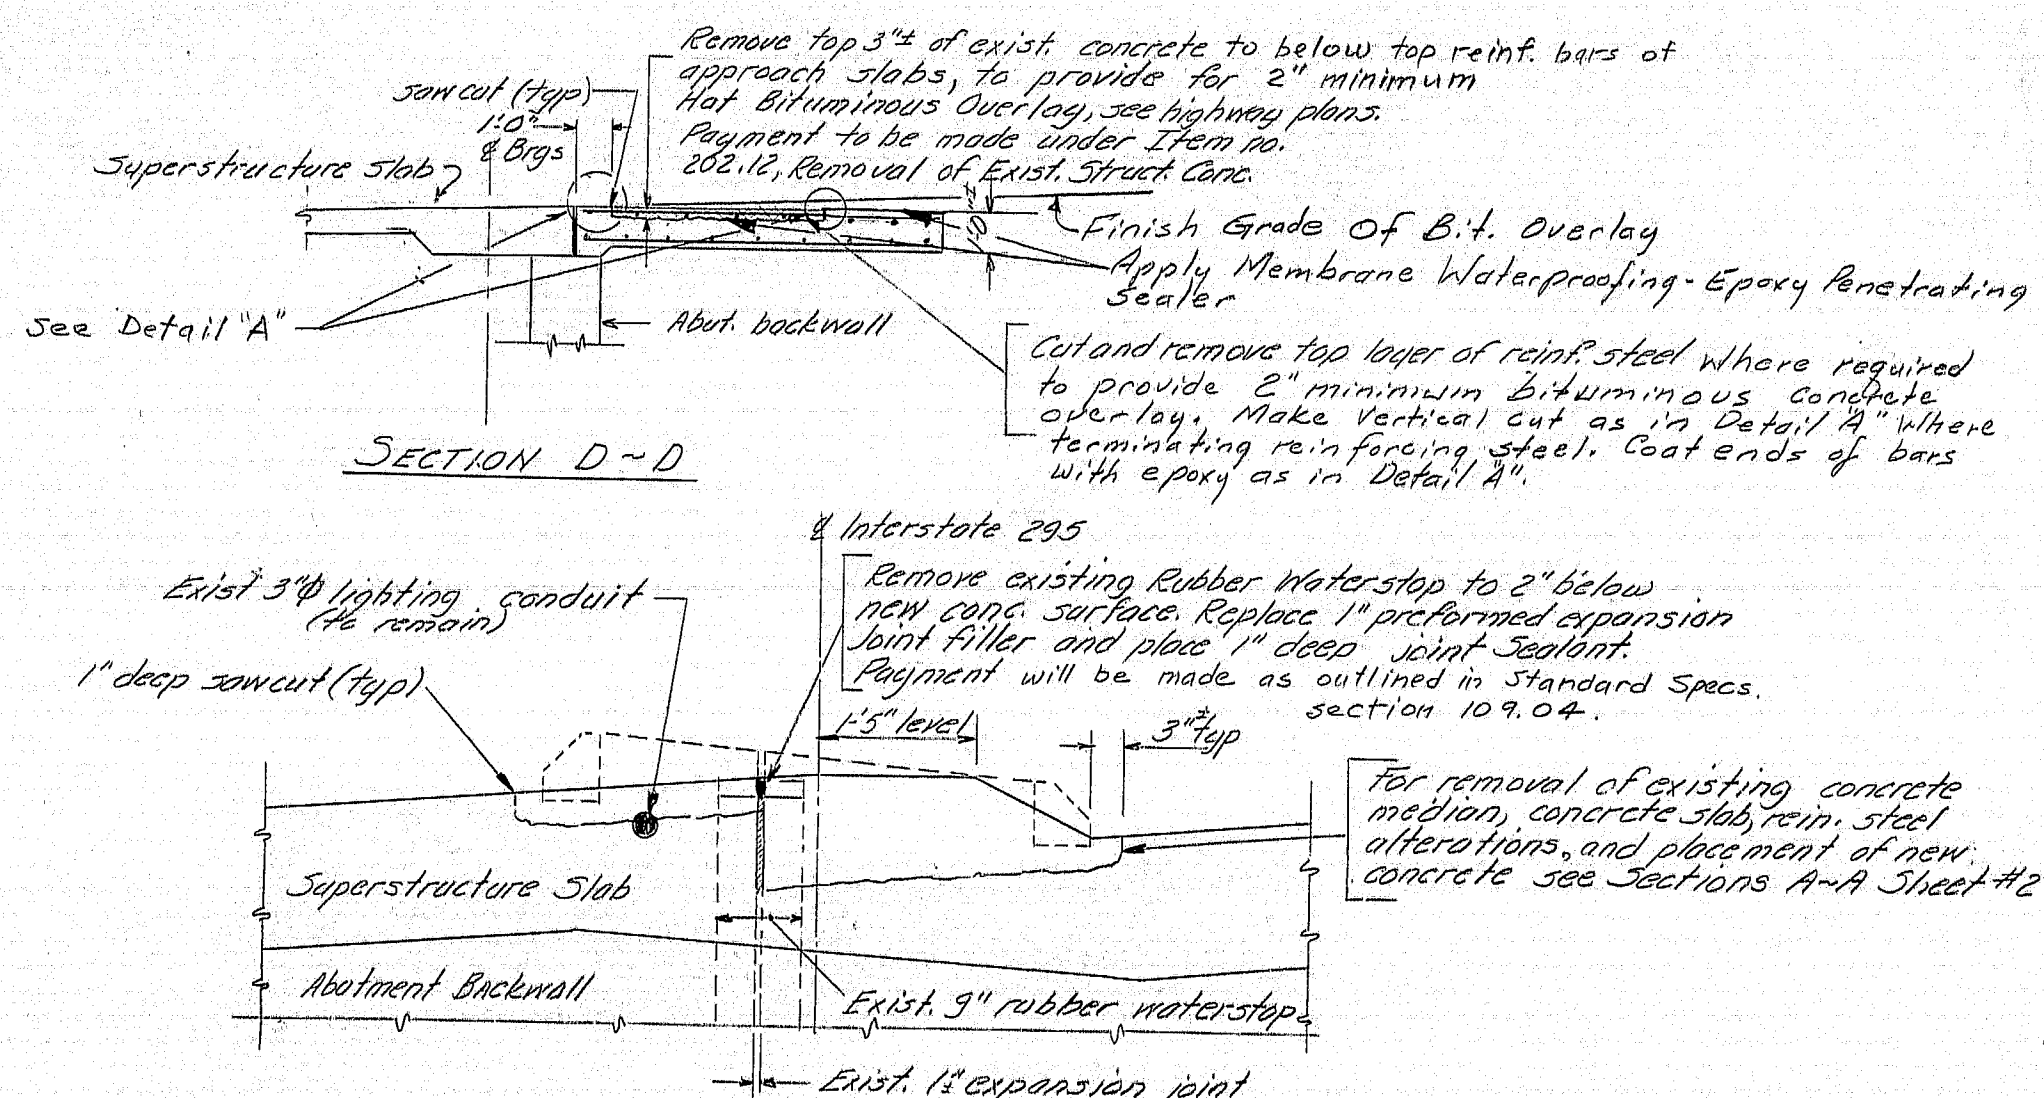 Remove top 3"± of exist. concrete to below top reinf. bars of
approach slabs, to provide for 2" minimum
Hot Bituminous Overlay, see highway plans.
Payment to be made under Item no.
202.12, Removal of Exist. Struct. Conc.
sawcut (typ)
1'-0"
℄ Brgs
Superstructure Slab
1'-0"±
Finish Grade Of Bit. Overlay
Apply Membrane Waterproofing - Epoxy Penetrating
Sealer
See Detail "A"
Abut. backwall
Cut and remove top layer of reinf. steel where required
to provide 2" minimum bituminous concrete
overlay. Make vertical cut as in Detail "A" where
terminating reinforcing steel. Coat ends of bars
with epoxy as in Detail "A".
SECTION D~D
℄ Interstate 295
Exist 3"Φ lighting conduit
(to remain)
Remove existing Rubber Waterstop to 2" below
new conc. surface. Replace 1" preformed expansion
Joint filler and place 1" deep joint Sealant.
Payment will be made as outlined in Standard Specs.
section 109.04.
1" deep sawcut (typ)
1'-5" level
3"± typ
For removal of existing concrete
median, concrete slab, rein. steel
alterations, and placement of new
concrete see Sections A~A Sheet #2
Superstructure Slab
Abutment Backwall
Exist. 9" rubber waterstop
Exist. 1"± expansion joint